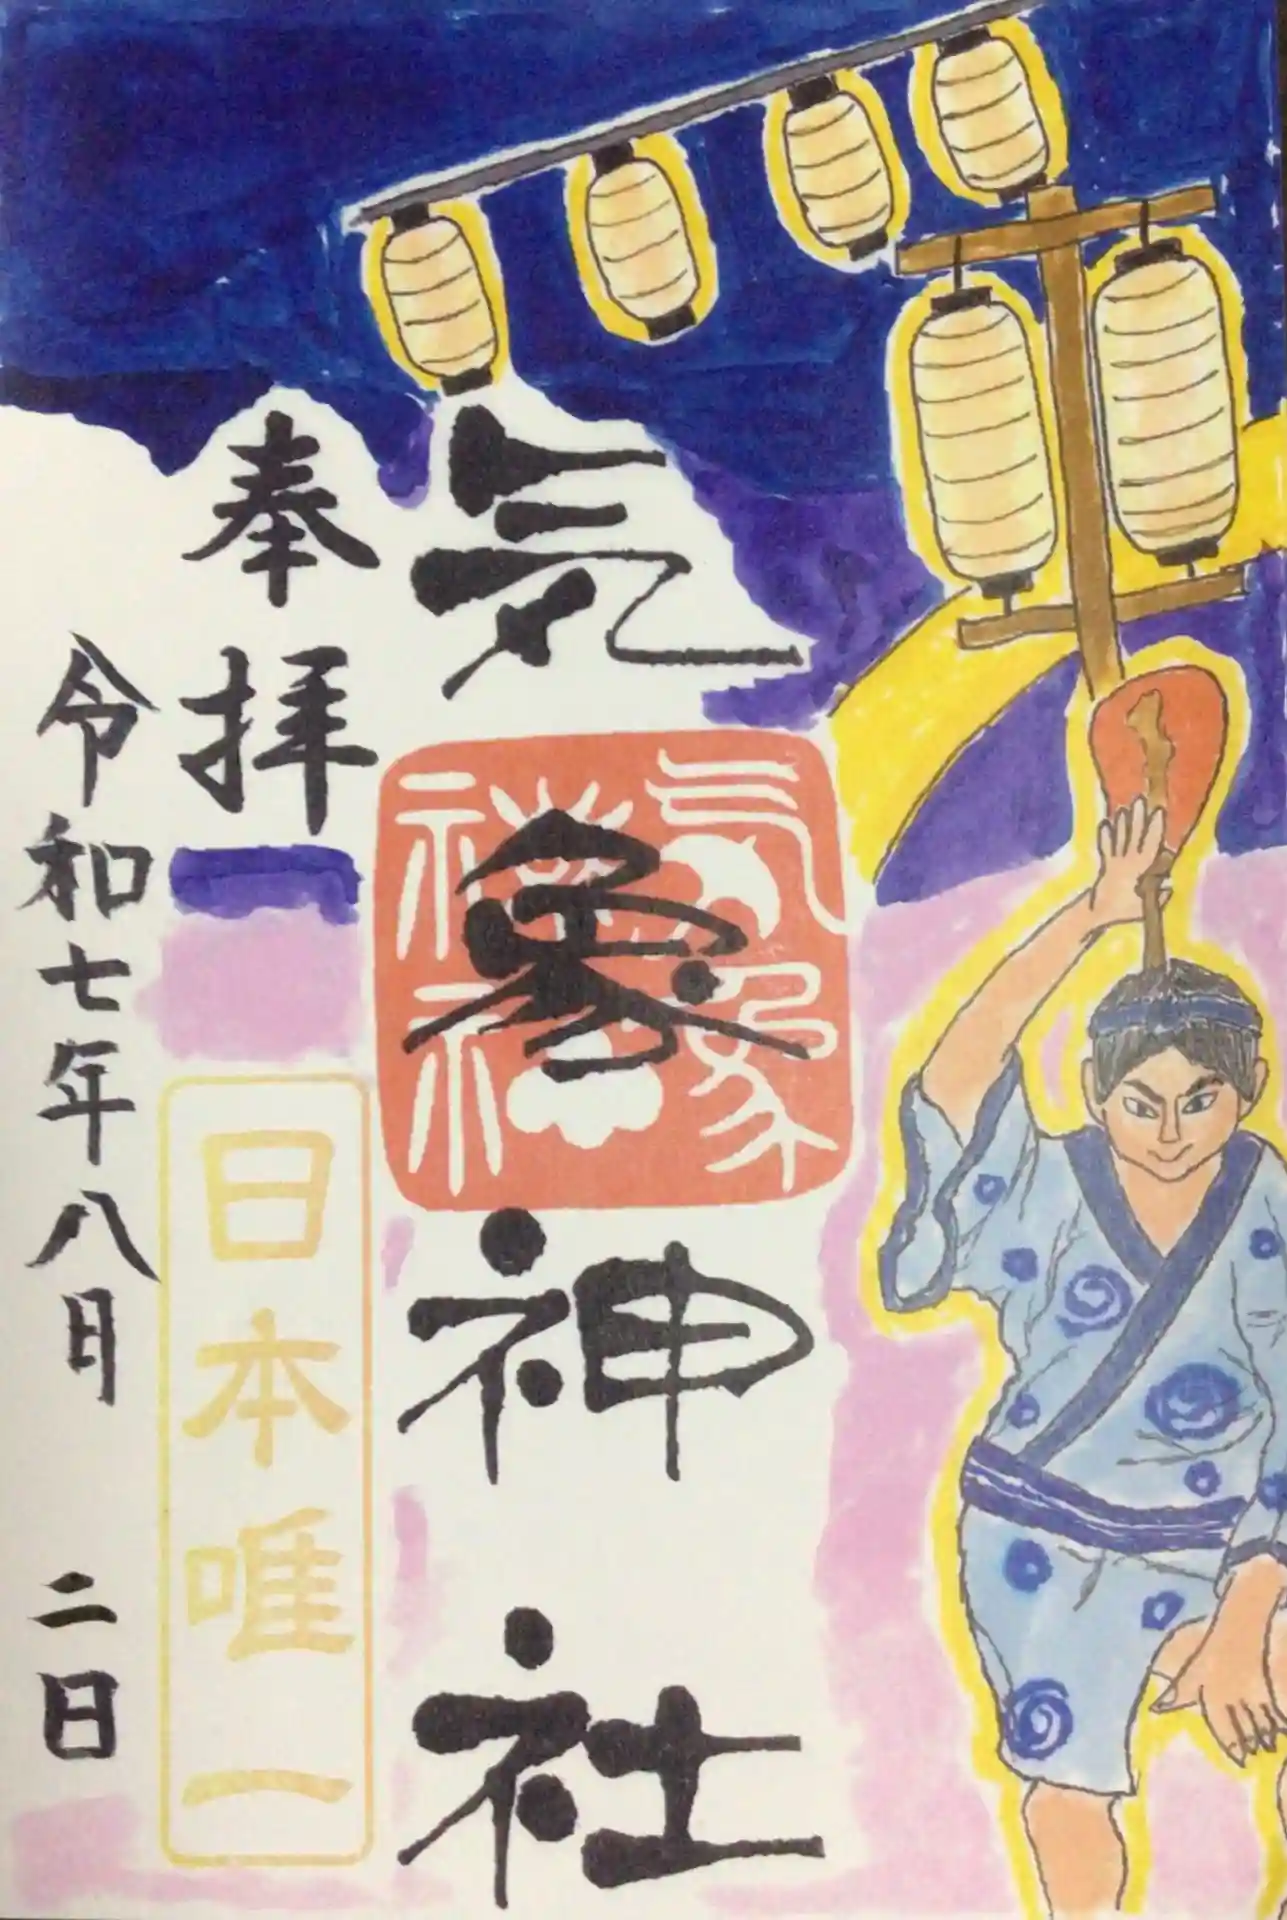 気象神社
気象
神社
奉拝
日本唯一
令和七年八月二日